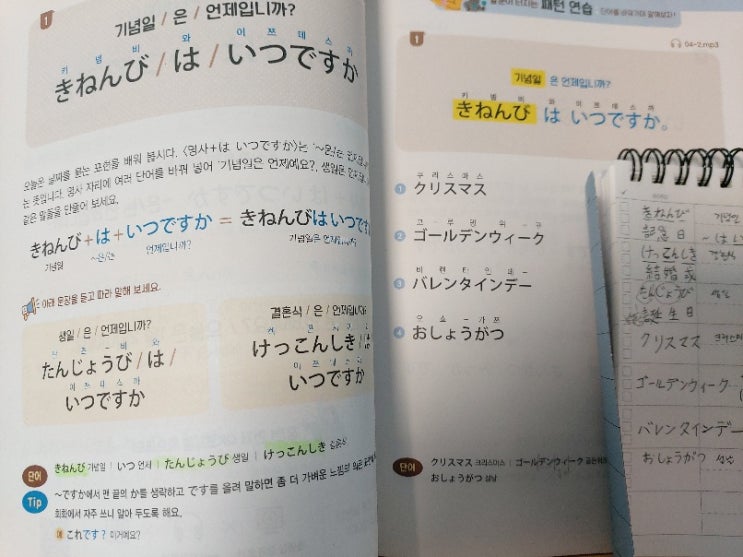 1
기념일 / 은 / 언제입니까?
키 넴 비 와 이 쯔 데 스 까
きねんび / は / いつですか
오늘은 날짜를 묻는 표현을 배워 봅시다. 〈명사+は いつですか〉는 '~은
는 뜻입니다. 명사 자리에 여러 단어를 바꿔 넣어 '기념일은 언제예요?, 생일은
같은 말들을 만들어 보세요.
きねんび+は+いつですか = きねんびはいつですか
기념일 ~은/는 언제입니까? 기념일은
아래 문장을 듣고 따라 말해 보세요.
생일 / 은 / 언제입니까?
たんじょうび / は /
이 쯔 데 스 까
いつですか
결혼식 / 은 / 언제입니까?
けっこんしき /
이 쯔 데 스 까
いつですか
단어 きねんび 기념일 | いつ 언제 | たんじょうび 생일 | けっこんしき 결혼식
Tip ~ですか에서 맨 끝의 か를 생략하고 です를 올려 말하면 좀 더 가벼운 느낌의
회화에서 자주 쓰니 알아 두도록 해요.
예 これです? 이거예요?
터지는 패턴 연습 단어를 바꿔가며 말해보자!
1
04-2.mp3
기념일 은 언제입니까?
키 넴 비 와 이 쯔 데 스 까
きねんび は いつですか。
쿠 리 스 마 스
1 クリスマス
고 - 루 뎅 위 - 쿠
2 ゴールデンウィーク
바 렌 타 인 데 -
3 バレンタインデー
오 쇼 - 가쯔
4 おしょうがつ
단어 クリスマス 크리스마스 | ゴールデンウィーク
おしょうがつ 설날
きねんび 기념일
記念日 ~は
けっこんしき
結婚式
たんじょうび 생일
誕生日
クリスマス
ゴールデンウィーク
バレンタインデー
おしょうがつ 설날